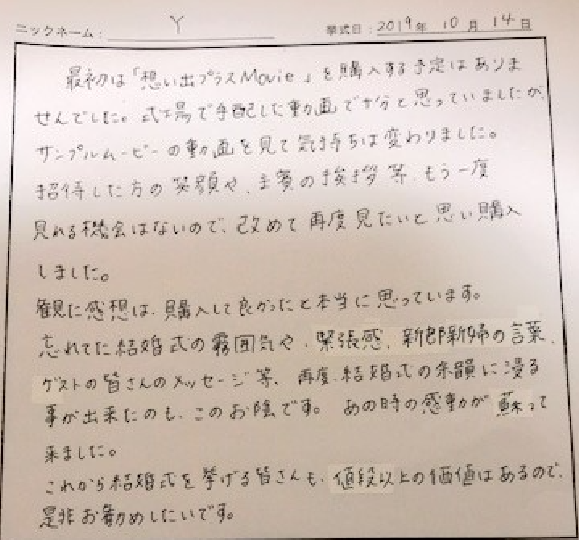 ニックネーム： Y 挙式日：2019年 10月 14日
最初は「想い出プラスMovie」を購入する予定はありま
せんでした。式場で手配した動画で十分と思っていましたが、
サンプルムービーの動画を見て気持ちは変わりました。
招待した方の笑顔や、主賓の挨拶等、もう一度
見れる機会はないので、改めて再度見たいと思い購入
しました。
観た感想は、購入して良かったと本当に思っています。
忘れてた結婚式の雰囲気や、緊張感、新郎新婦の言葉、
ゲストの皆さんのメッセージ等、再度、結婚式の余韻に浸る
事が出来たのも、このお陰です。あの時の感動が蘇って
来ました。
これから結婚式を挙げる皆さんも、値段以上の価値はあるので、
是非お勧めしたいです。